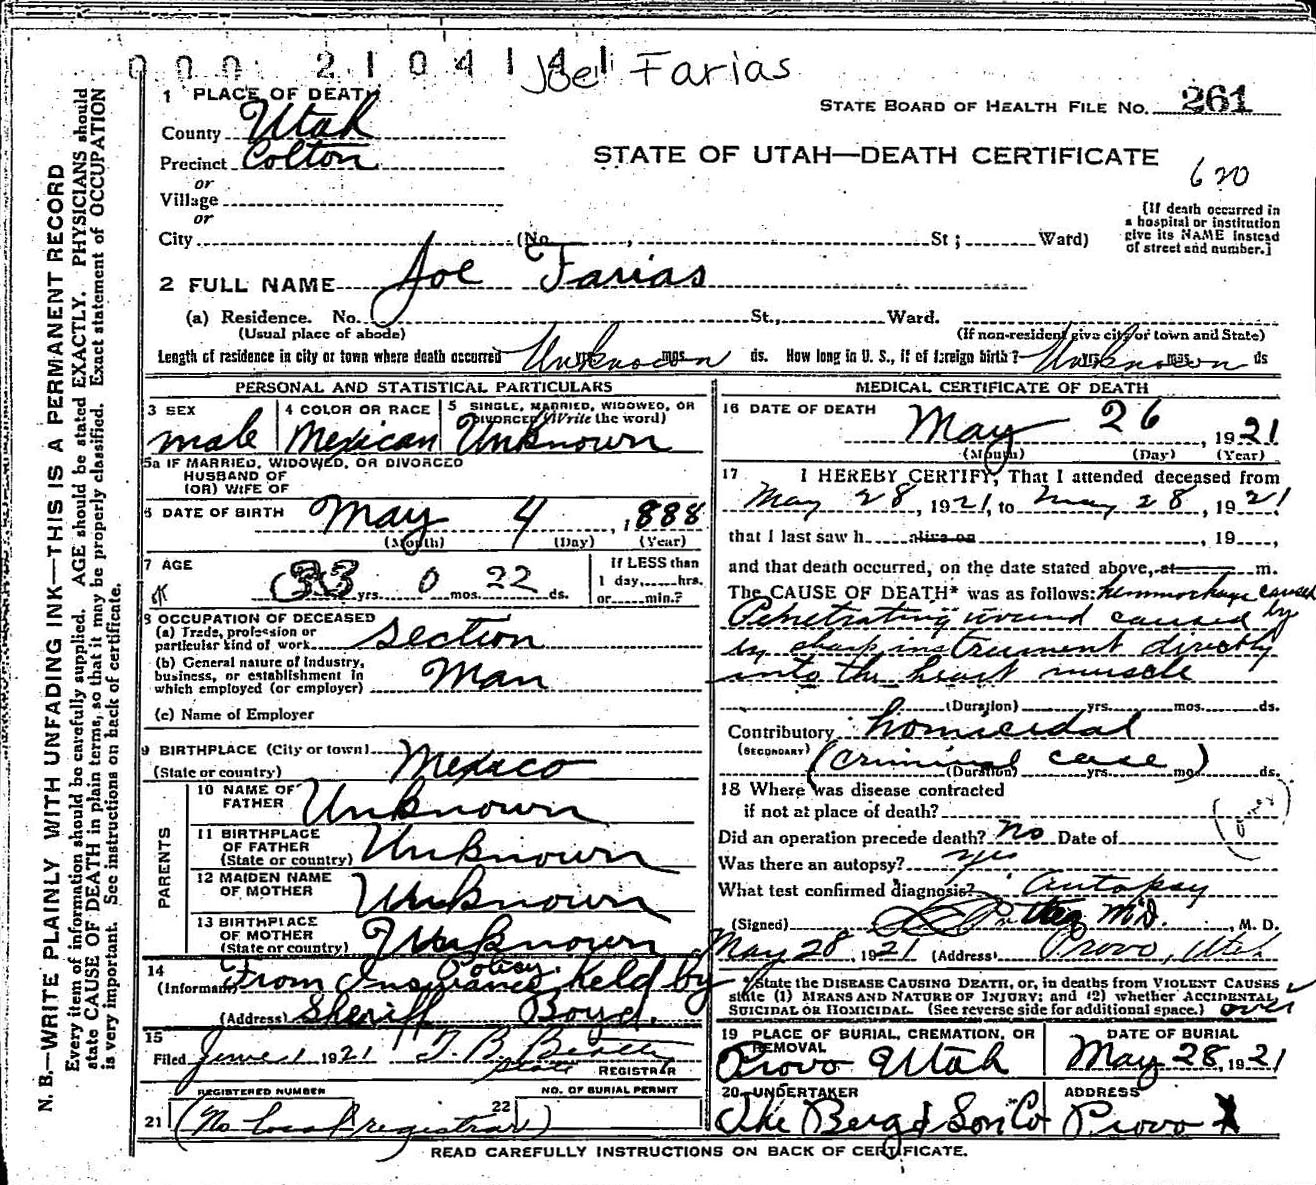 0 0 0 2 1 0 4 1 4 1 Joel Farias
1 PLACE OF DEATH
STATE BOARD OF HEALTH FILE NO. 261
County Utah
Precinct Colton
STATE OF UTAH—DEATH CERTIFICATE
or
620
Village
or
[If death occurred in
a hospital or institution
give its NAME instead
of street and number.]
City (No. , St ; Ward)
2 FULL NAME Joe Farias
(a) Residence. No. St., Ward.
(Usual place of abode) (If non-resident give city or town and State)
Length of residence in city or town where death occurred Unknown yrs. mos. ds. How long in U. S., if of foreign birth? Unknown yrs. mos. ds
PERSONAL AND STATISTICAL PARTICULARS
3 SEX male
4 COLOR OR RACE Mexican
5 SINGLE, MARRIED, WIDOWED, OR
DIVORCED (Write the word)
Unknown
5a IF MARRIED, WIDOWED, OR DIVORCED
HUSBAND OF
(OR) WIFE OF
6 DATE OF BIRTH May 4, 1888
(Month) (Day) (Year)
7 AGE
33 yrs. 0 mos. 22 ds.
If LESS than
1 day, hrs.
or min.?
8 OCCUPATION OF DECEASED
(a) Trade, profession or
particular kind of work Section
(b) General nature of Industry,
business, or establishment in
which employed (or employer) Man
(c) Name of Employer
9 BIRTHPLACE (City or town)
(State or country) Mexico
PARENTS
10 NAME OF
FATHER Unknown
11 BIRTHPLACE
OF FATHER
(State or country) Unknown
12 MAIDEN NAME
OF MOTHER Unknown
13 BIRTHPLACE
OF MOTHER
(State or country) Unknown
14
(Informant) From Insurance Policy held by
(Address) Sheriff Boyd.
15
Filed June 1 1921 T. B. Beatty
State REGISTRAR
REGISTERED NUMBER
NO. OF BURIAL PERMIT
21 (No local registrar) 22
MEDICAL CERTIFICATE OF DEATH
16 DATE OF DEATH
May 26, 1921
(Month) (Day) (Year)
17 I HEREBY CERTIFY, That I attended deceased from
May 28, 1921, to May 28, 1921
that I last saw h alive on , 19 ,
and that death occurred, on the date stated above, at m.
The CAUSE OF DEATH* was as follows: hemmorhage caused by
Penetrating wound caused
by sharp instrument directly
into the heart muscle
(Duration) yrs. mos. ds.
Contributory homicidal
(SECONDARY) (Criminal case)
(Duration) yrs. mos. ds.
18 Where was disease contracted
if not at place of death?
Did an operation precede death? No Date of
Was there an autopsy? yes
What test confirmed diagnosis? Autopsy
(Signed) M.D. , M. D.
May 28, 1921 (Address) Provo, Utah
*State the DISEASE CAUSING DEATH, or, in deaths from VIOLENT CAUSES
state (1) MEANS AND NATURE OF INJURY; and (2) whether ACCIDENTAL
SUICIDAL OR HOMICIDAL. (See reverse side for additional space.) over
19 PLACE OF BURIAL, CREMATION, OR
REMOVAL
Provo Utah
DATE OF BURIAL
May 28, 1921
20 UNDERTAKER
The Berg & Son Co
ADDRESS
Provo
READ CAREFULLY INSTRUCTIONS ON BACK OF CERTIFICATE.
N. B.—WRITE PLAINLY WITH UNFADING INK—THIS IS A PERMANENT RECORD
Every item of information should be carefully supplied. AGE should be stated EXACTLY. PHYSICIANS should
state CAUSE OF DEATH in plain terms, so that it may be properly classified. Exact statement of OCCUPATION
is very important. See instructions on back of certificate.